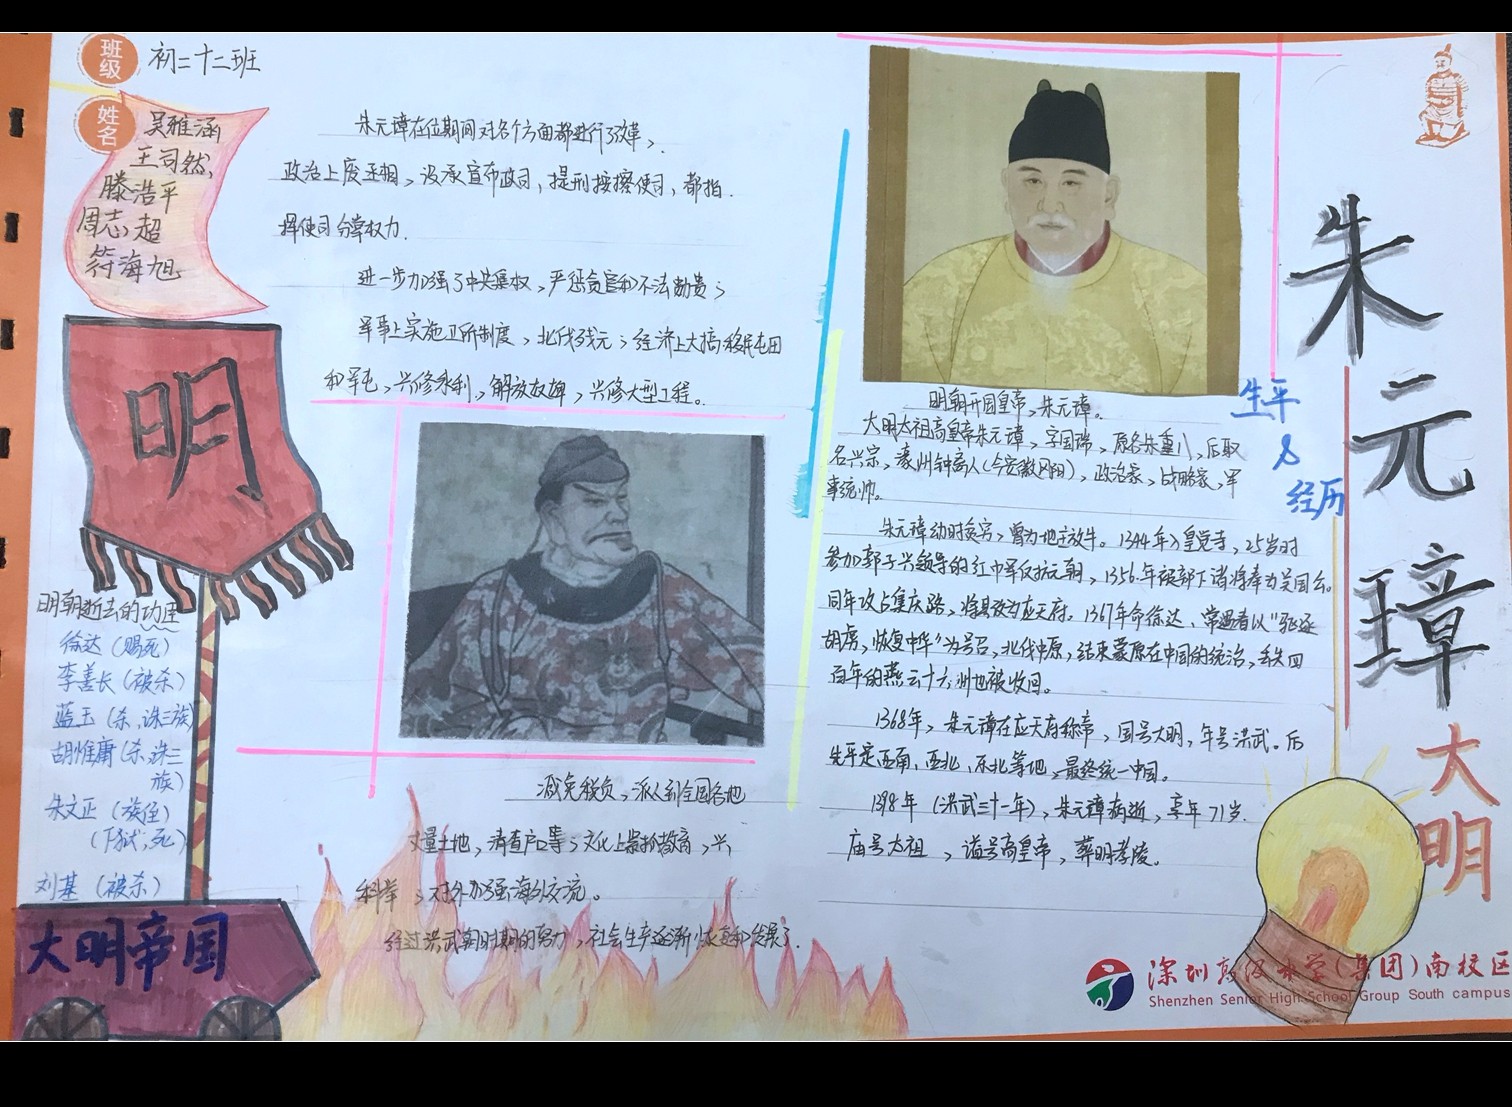 班级 初二十二班
姓名
吴雅涵
王司然,
滕浩平
周志超
符海旭
明
明朝逝去的功臣
徐达(赐死)
李善长(被杀)
蓝玉(杀,诛三族)
胡惟庸(杀,诛三
族)
朱文正(族侄)
(下狱,死)
刘基(被杀)
大明帝国
朱元璋在位期间对各个方面都进行了改革,
政治上废丞相,设承宣布政司,提刑按擦使司,都指
挥使司分掌权力.
进一步加强了中央集权,严惩贪官和不法勋贵;
军事上实施卫所制度,北伐残元;经济上大搞移民屯田
和军屯,兴修水利,解放奴婢,兴修大型工程。
减免税负,派人到全国各地
丈量土地,清查户口等;文化上紧抓教育,兴
科举;对外加强海外交流。
经过洪武期时期的努力,社会生产逐渐恢复和发展了.
明朝开国皇帝,朱元璋。
大明太祖高皇帝朱元璋,字国瑞,原名朱重八,后取
名兴宗,濠州钟离人(今安徽凤阳),政治家,战略家,军
事统帅。
朱元璋幼时贫穷,曾为地主放牛。1344年入皇觉寺,25岁时
参加郭子兴领导的红巾军反抗元朝,1356年被部下诸将奉为吴国公。
同年攻占集庆路,将其改为应天府。1367年命徐达、常遇春以“驱逐
胡虏,恢复中华”为号召,北伐中原,结束蒙原在中国的统治,丢失四
百年的燕云十六州也被收回。
1368年,朱元璋在应天府称帝,国号大明,年号洪武。后
先平定西南、西北、东北等地,最终统一中国。
1398年(洪武三十一年),朱元璋病逝,享年71岁.
庙号太祖,谥号高皇帝,葬明孝陵。
生平
&
经历
朱元璋
大明
深圳高级中学(集团)南校区
Shenzhen Senior High School Group South campus